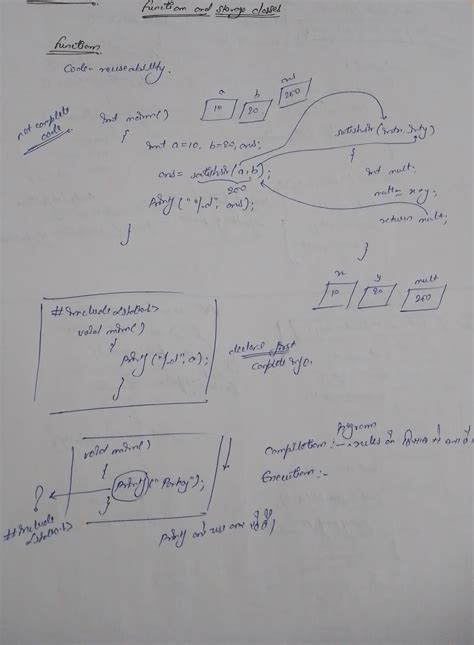 Function and storage classes
Function
Code-reuseability.
not complete code
int main()
{
int a=10, b=20, ans;
ans = satishsir(a,b);
200
printf("%d", ans);
}
a b ans
10 20 200
satishsir(int x, int y)
{
int mult;
mult = x*y;
return mult;
}
x y mult
10 20 200
#include<stdio.h>
void main()
{
printf("%d", a);
}
declare first
complete
void main()
{
printf("Party");
}
?
#include
<stdio.h>
Program
Compilation :- rules
Execution:-
printf